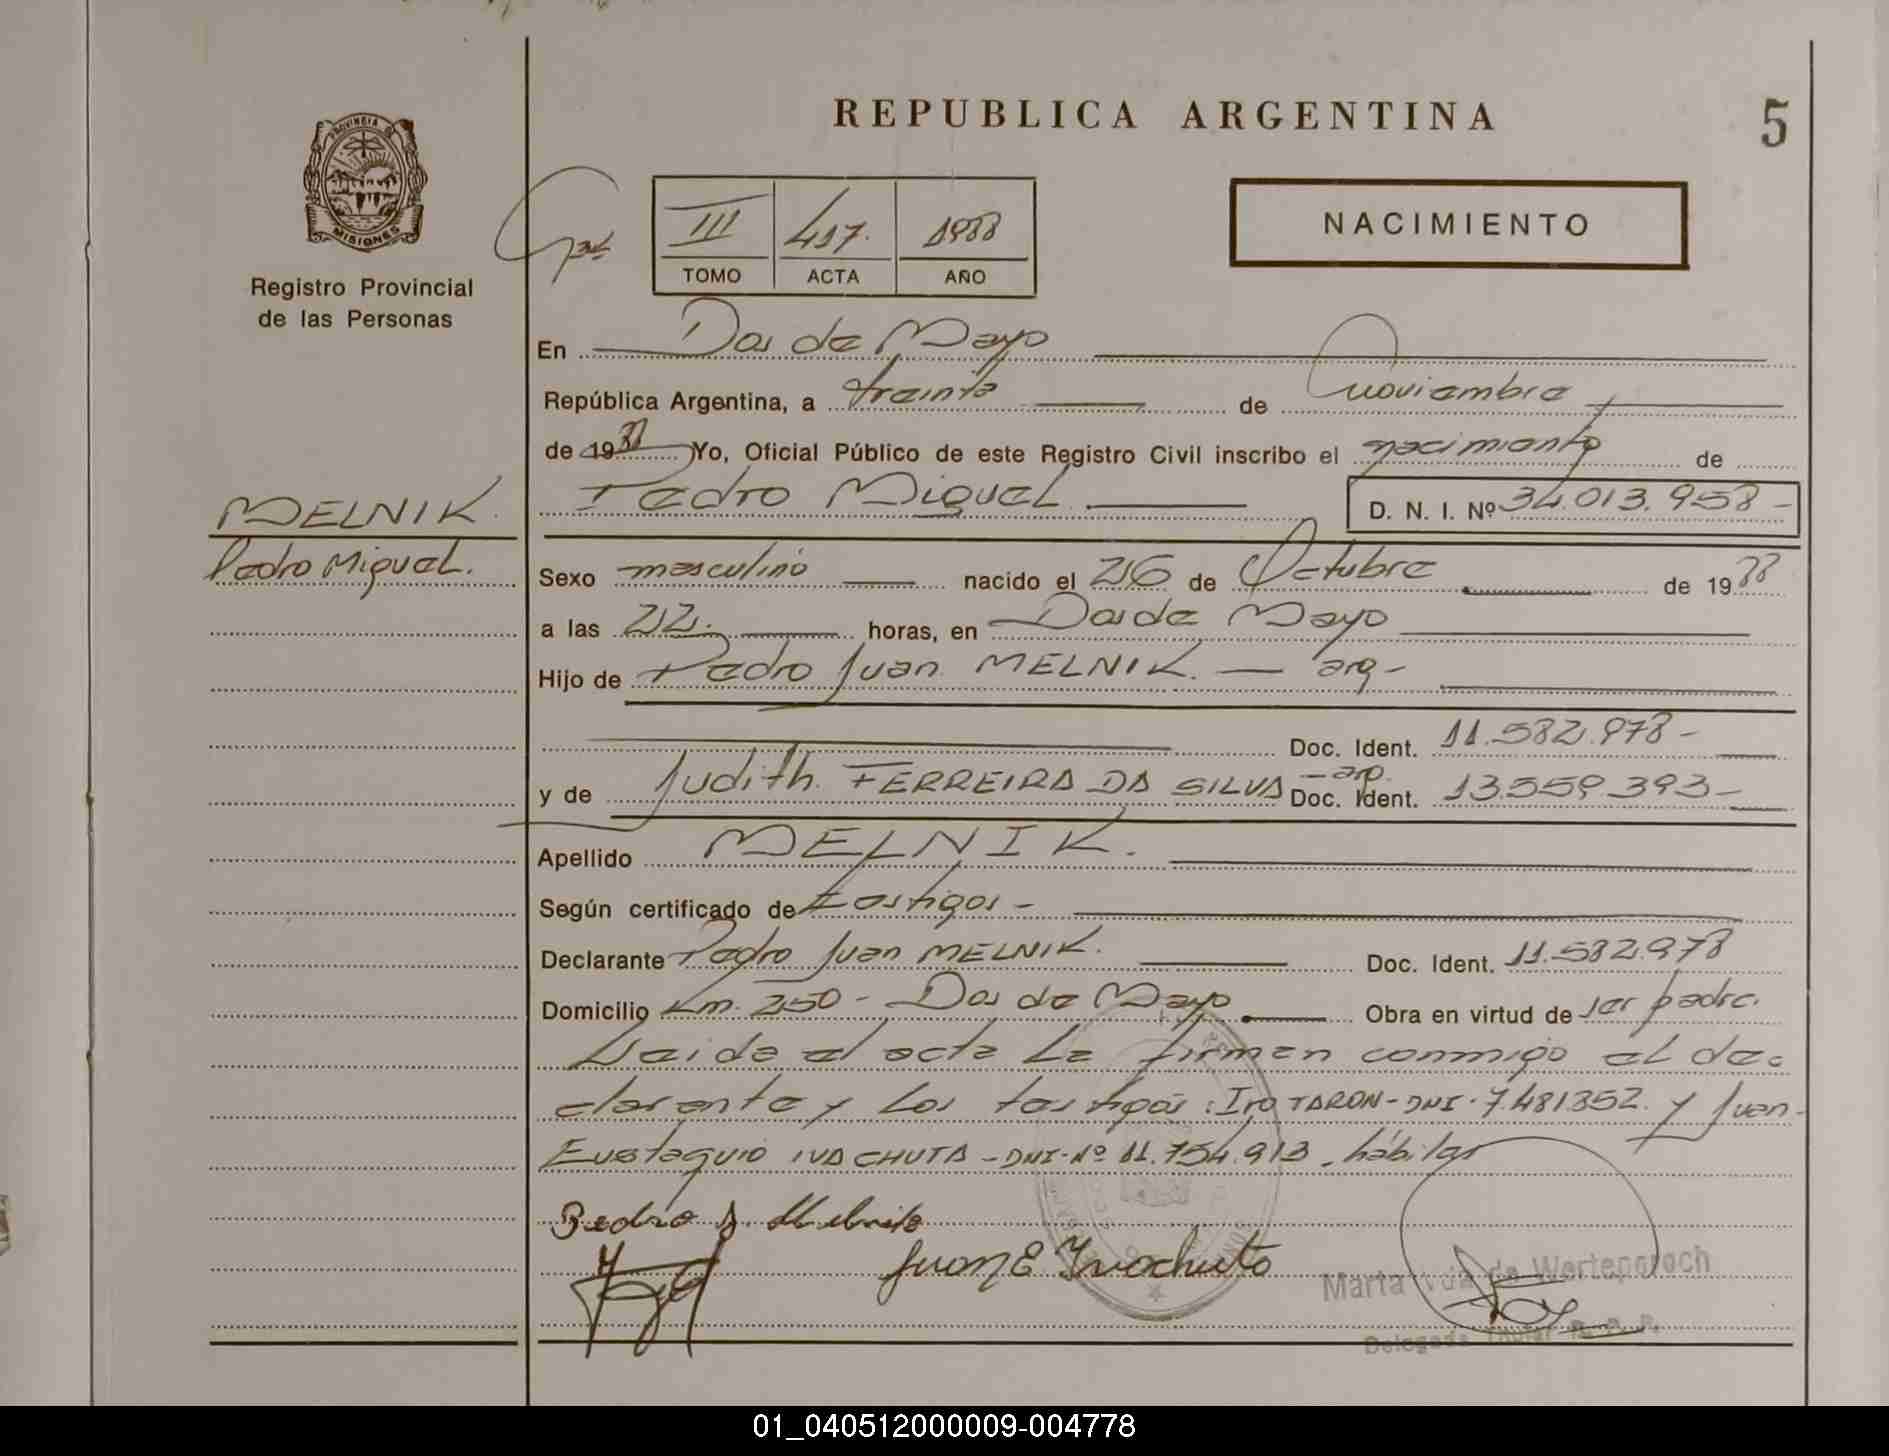 REPUBLICA ARGENTINA
5
PROVINCIA DE
MISIONES
Registro Provincial
de las Personas
III 417. 1988
TOMO ACTA AÑO
NACIMIENTO
En Dos de Mayo
República Argentina, a treinta de noviembre
de 1988 Yo, Oficial Público de este Registro Civil inscribo el nacimiento de
Pedro Miguel D. N. I. Nº 34.013.958-
MELNIK.
Pedro Miguel.
Sexo masculino nacido el 26 de Octubre de 1988
a las 22. horas, en Dos de Mayo
Hijo de Pedro Juan MELNIK. — arg-
Doc. Ident. 11.582.978-
y de Judith FERREIRA DA SILVA - arg. Doc. Ident. 13.559.393-
Apellido MELNIK.
Según certificado de testigos-
Declarante Pedro Juan MELNIK. Doc. Ident. 11.582.978
Domicilio Km. 250 - Dos de Mayo Obra en virtud de ser padre.
Leida el acta la firman conmigo el de-
clarante y los testigos: Ito TARON-DNI-7.481.352. y Juan
Eustaquio IVACHUTA-DNI-Nº 11.754.913. hábiles
Pedro J. Melnik
Juan E Ivachuta
Marta Vda de Werteperoch
Delegada Titular R. P. P.
01_040512000009-004778